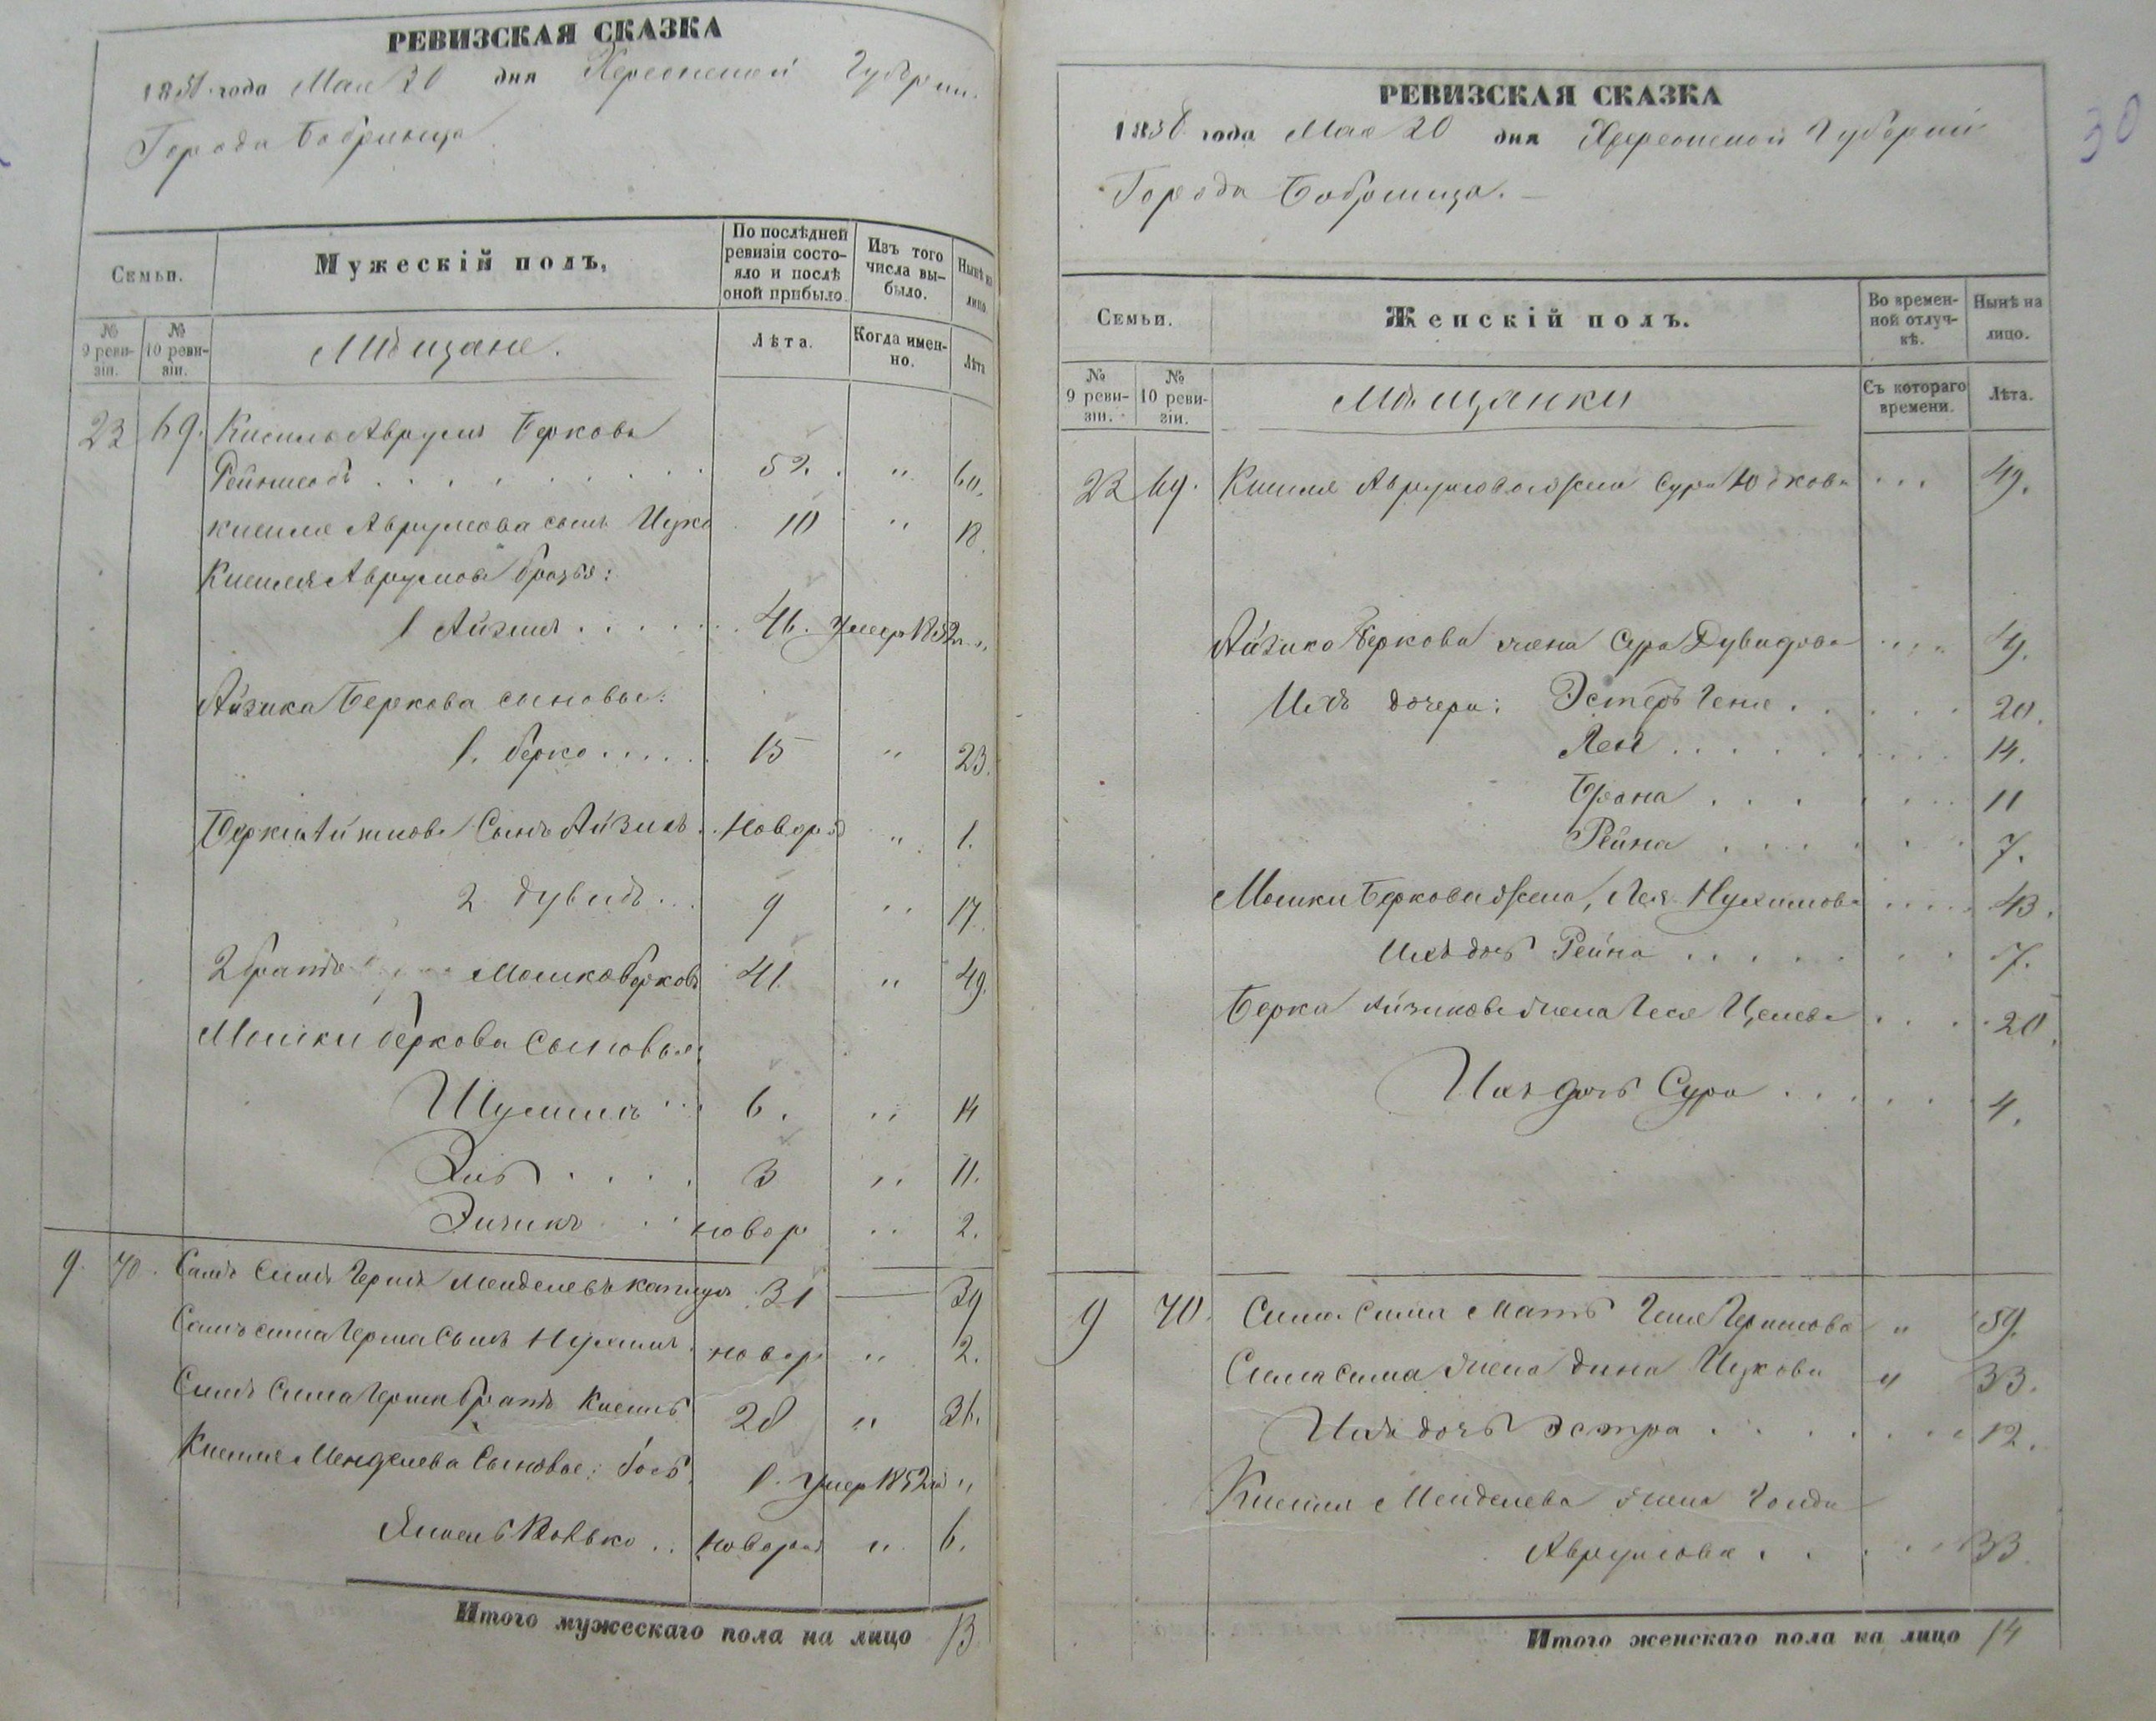 РЕВИЗСКАЯ СКАЗКА
1858 года Мая 20 дня Херсонской Губернии
Города Бобринца
Семьи.
Мужескій полъ,
По послѣдней ревизіи состояло и послѣ оной прибыло.
Изъ того числа выбыло.
Нынѣ на лицо.
№ 9 ревизіи.
№ 10 ревизіи.
Мѣщане.
Лѣта.
Когда именно.
Лѣта
23 69. Кисиль Аврумъ Берковъ
52. " 60.
Кисиля Аврумова сынъ Ицко 10 " 18.
Кисиля Аврумова братья:
1 Айзикъ 46. Умер 1852 "
Айзика Беркова сыновья:
1. Берко 15 " 23.
Берки Айзикова Сынъ Айзикъ Новорож " 1.
2 Дувидъ 9 " 17.
2 братъ Мошко Берковъ 41. " 49.
Мошки Беркова Сыновья:
Шулимъ 6. " 14
Эль 3 " 11.
Эизикъ новор " 2.
9. 70. Симъ Герша Менделевъ 31 — 39
Герша Сынъ Нухимъ новор " 2.
Герша братъ Кисиль 28 " 36.
Кисиля Менделева Сыновья: Іось 1. Умер 1852 "
Янкель Волько новорож " 6.
Итого мужескаго пола на лицо 13
РЕВИЗСКАЯ СКАЗКА
1858 года Мая 20 дня Херсонской Губерніи
Города Бобринца.
30
Семьи.
Женскій полъ.
Во временной отлучкѣ.
Нынѣ на лицо.
№ 9 ревизіи.
№ 10 ревизіи.
Мѣщанки
Съ котораго времени.
Лѣта.
23 69. Кисиля Аврумова жена Сура Юдкова 49.
Айзика Беркова жена Сура Дувидова 49.
Ихъ дочери: Эстеръ Геня 20.
Лея 14.
Брана 11
Рейна 7.
Мошки Беркова жена, Лея Нухимова 43.
Ихъ дочь Рейна 7.
Берка Айзикова жена Геся 20.
Ихъ дочь Сура 4.
9 70. Сима мать Геня Гершкова " 59.
Сима жена Дина Ицкова " 33.
Ихъ дочь Эстра 12.
Кисиля Менделева жена Голда
Аврумова 33.
Итого женскаго пола на лицо 14